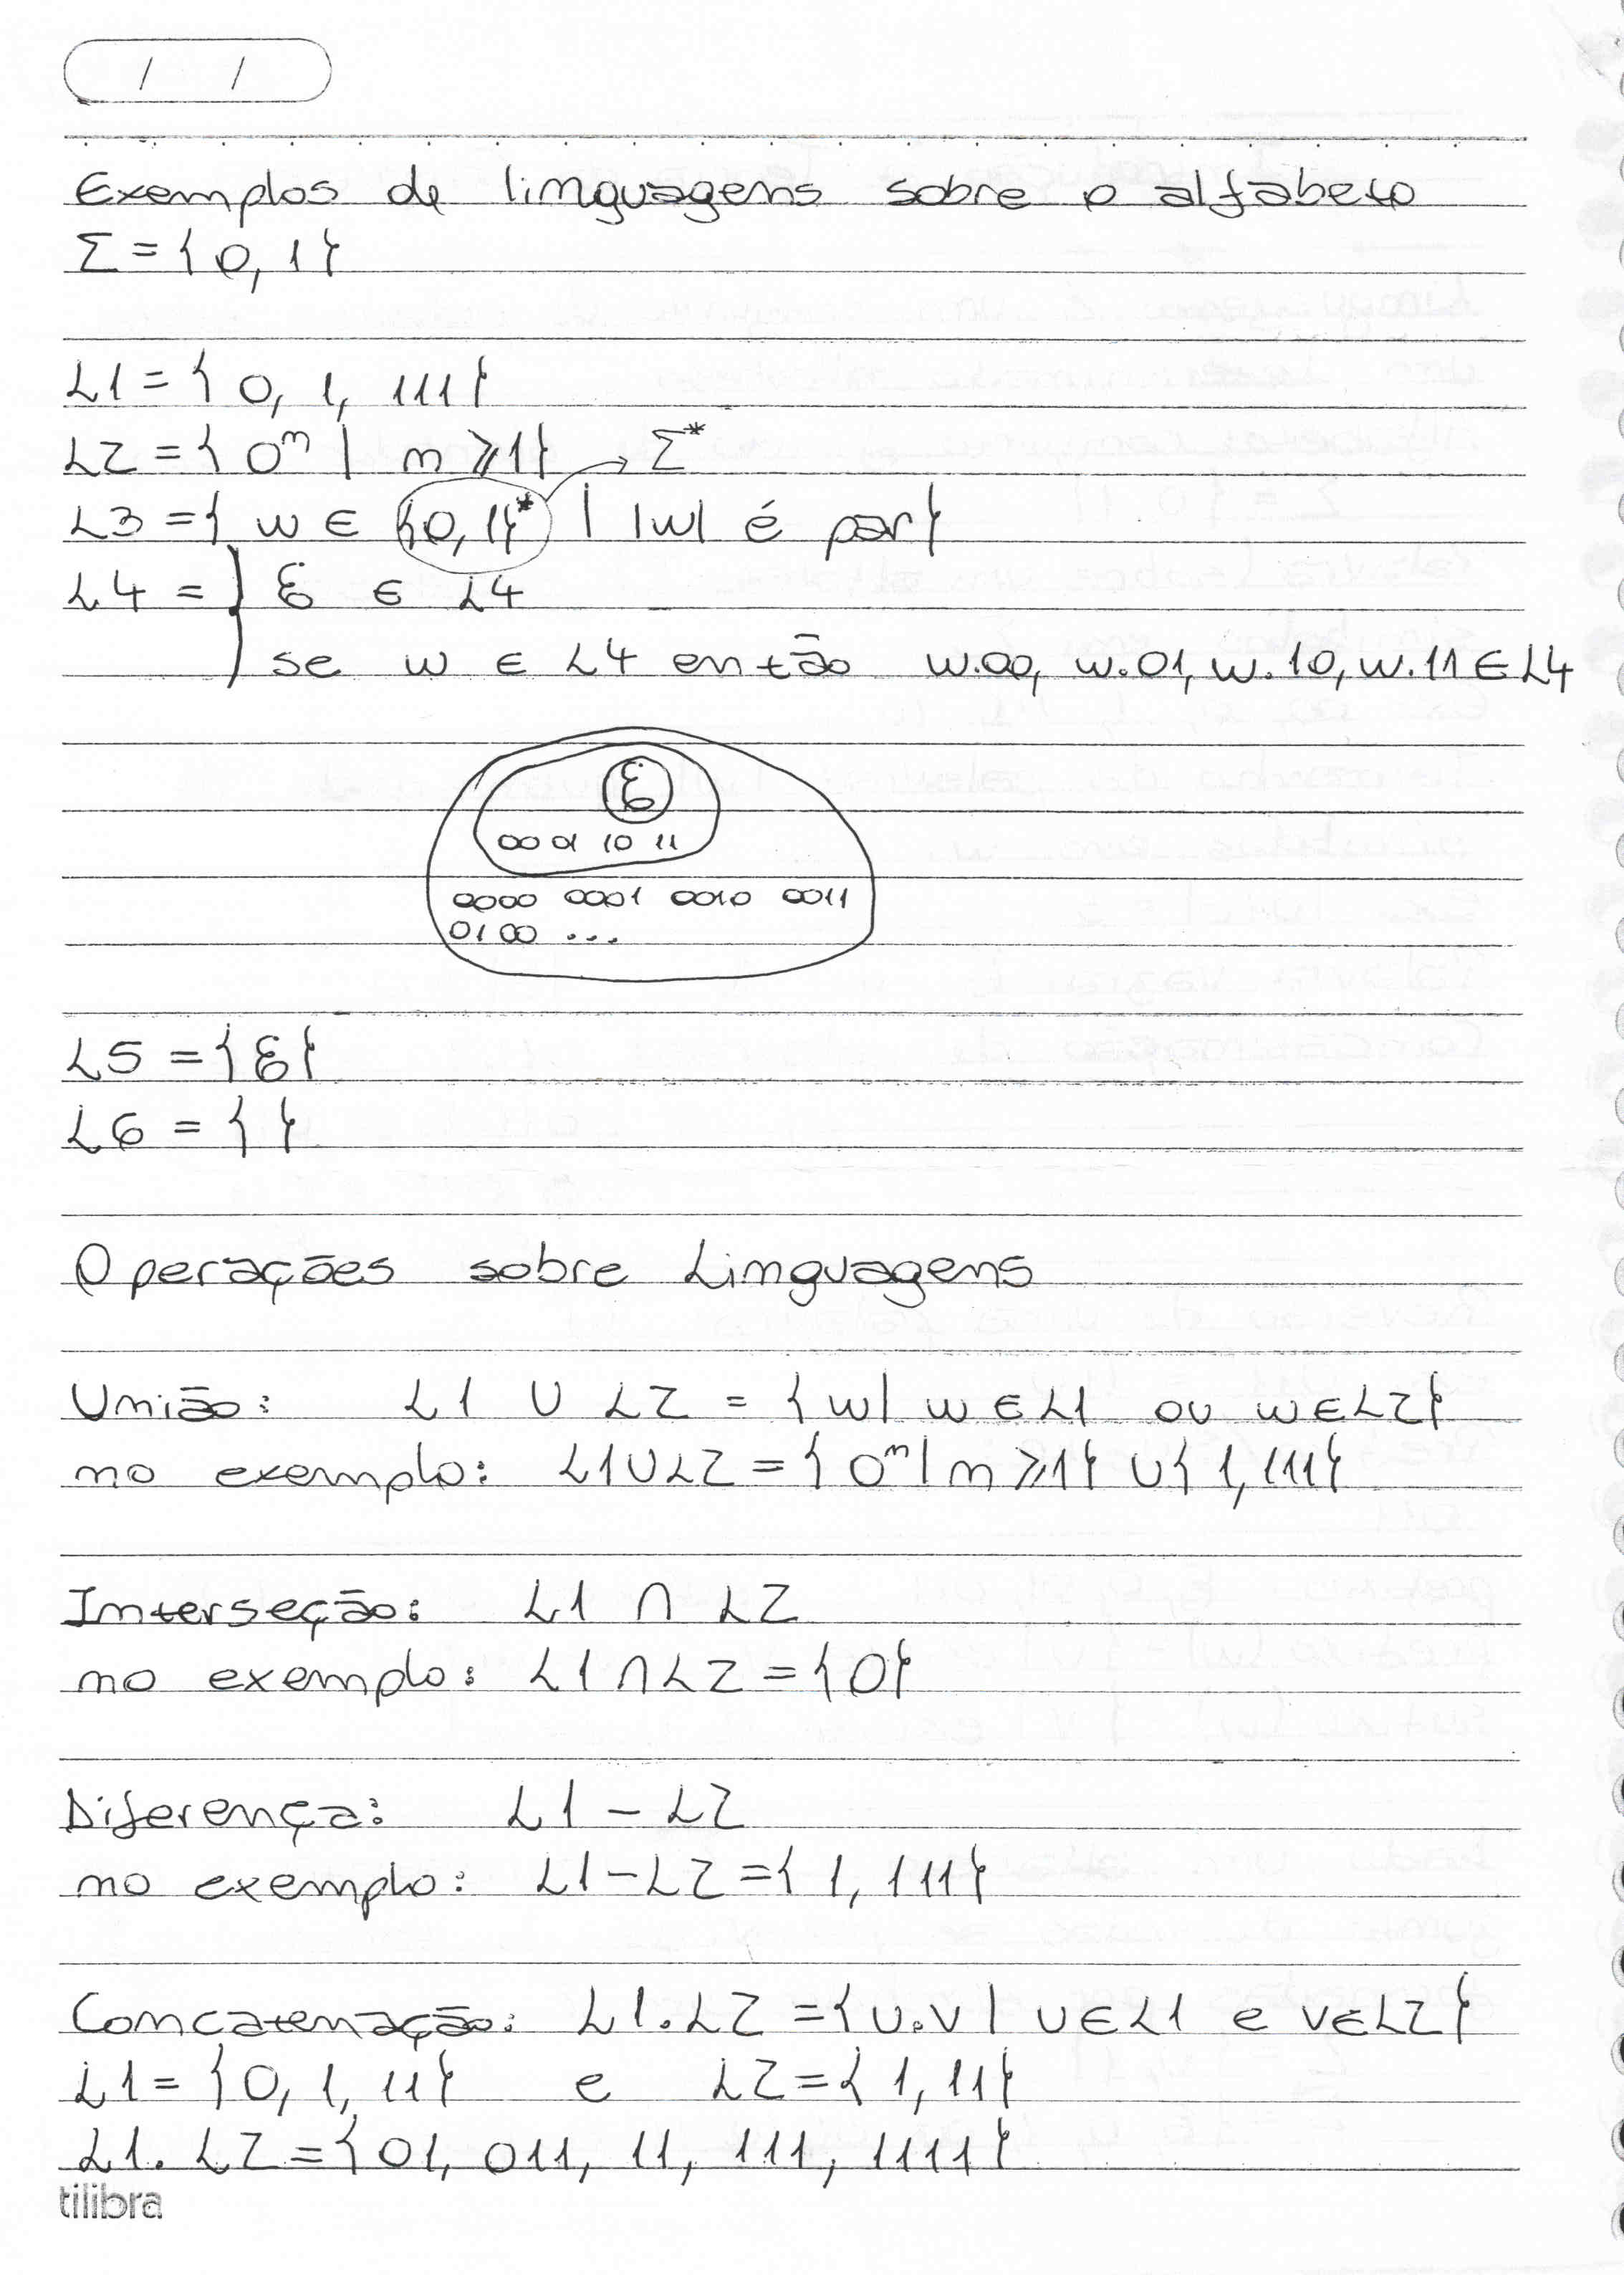 / /
Exemplos de linguagens sobre o alfabeto
Σ = {0, 1}
L1 = {0, 1, 111}
L2 = {0ⁿ | n ⩾ 1} Σ*
L3 = {w ∈ {0,1}* | |w| é par}
L4 = } ε ∈ L4
se w ∈ L4 então w.00, w.01, w.10, w.11 ∈ L4
ε
00 01 10 11
0000 0001 0010 0011
0100 ...
L5 = {ε}
L6 = { }
Operações sobre Linguagens
União: L1 ∪ L2 = {w | w ∈ L1 ou w ∈ L2}
no exemplo: L1 ∪ L2 = {0ⁿ | n ⩾ 1} ∪ {1, 111}
Interseção: L1 ∩ L2
no exemplo: L1 ∩ L2 = {0}
Diferença: L1 - L2
no exemplo: L1 - L2 = {1, 111}
Concatenação: L1.L2 = {u.v | u ∈ L1 e v ∈ L2}
L1 = {0, 1, 11} e L2 = {1, 11}
L1.L2 = {01, 011, 11, 111, 1111}
tilibra